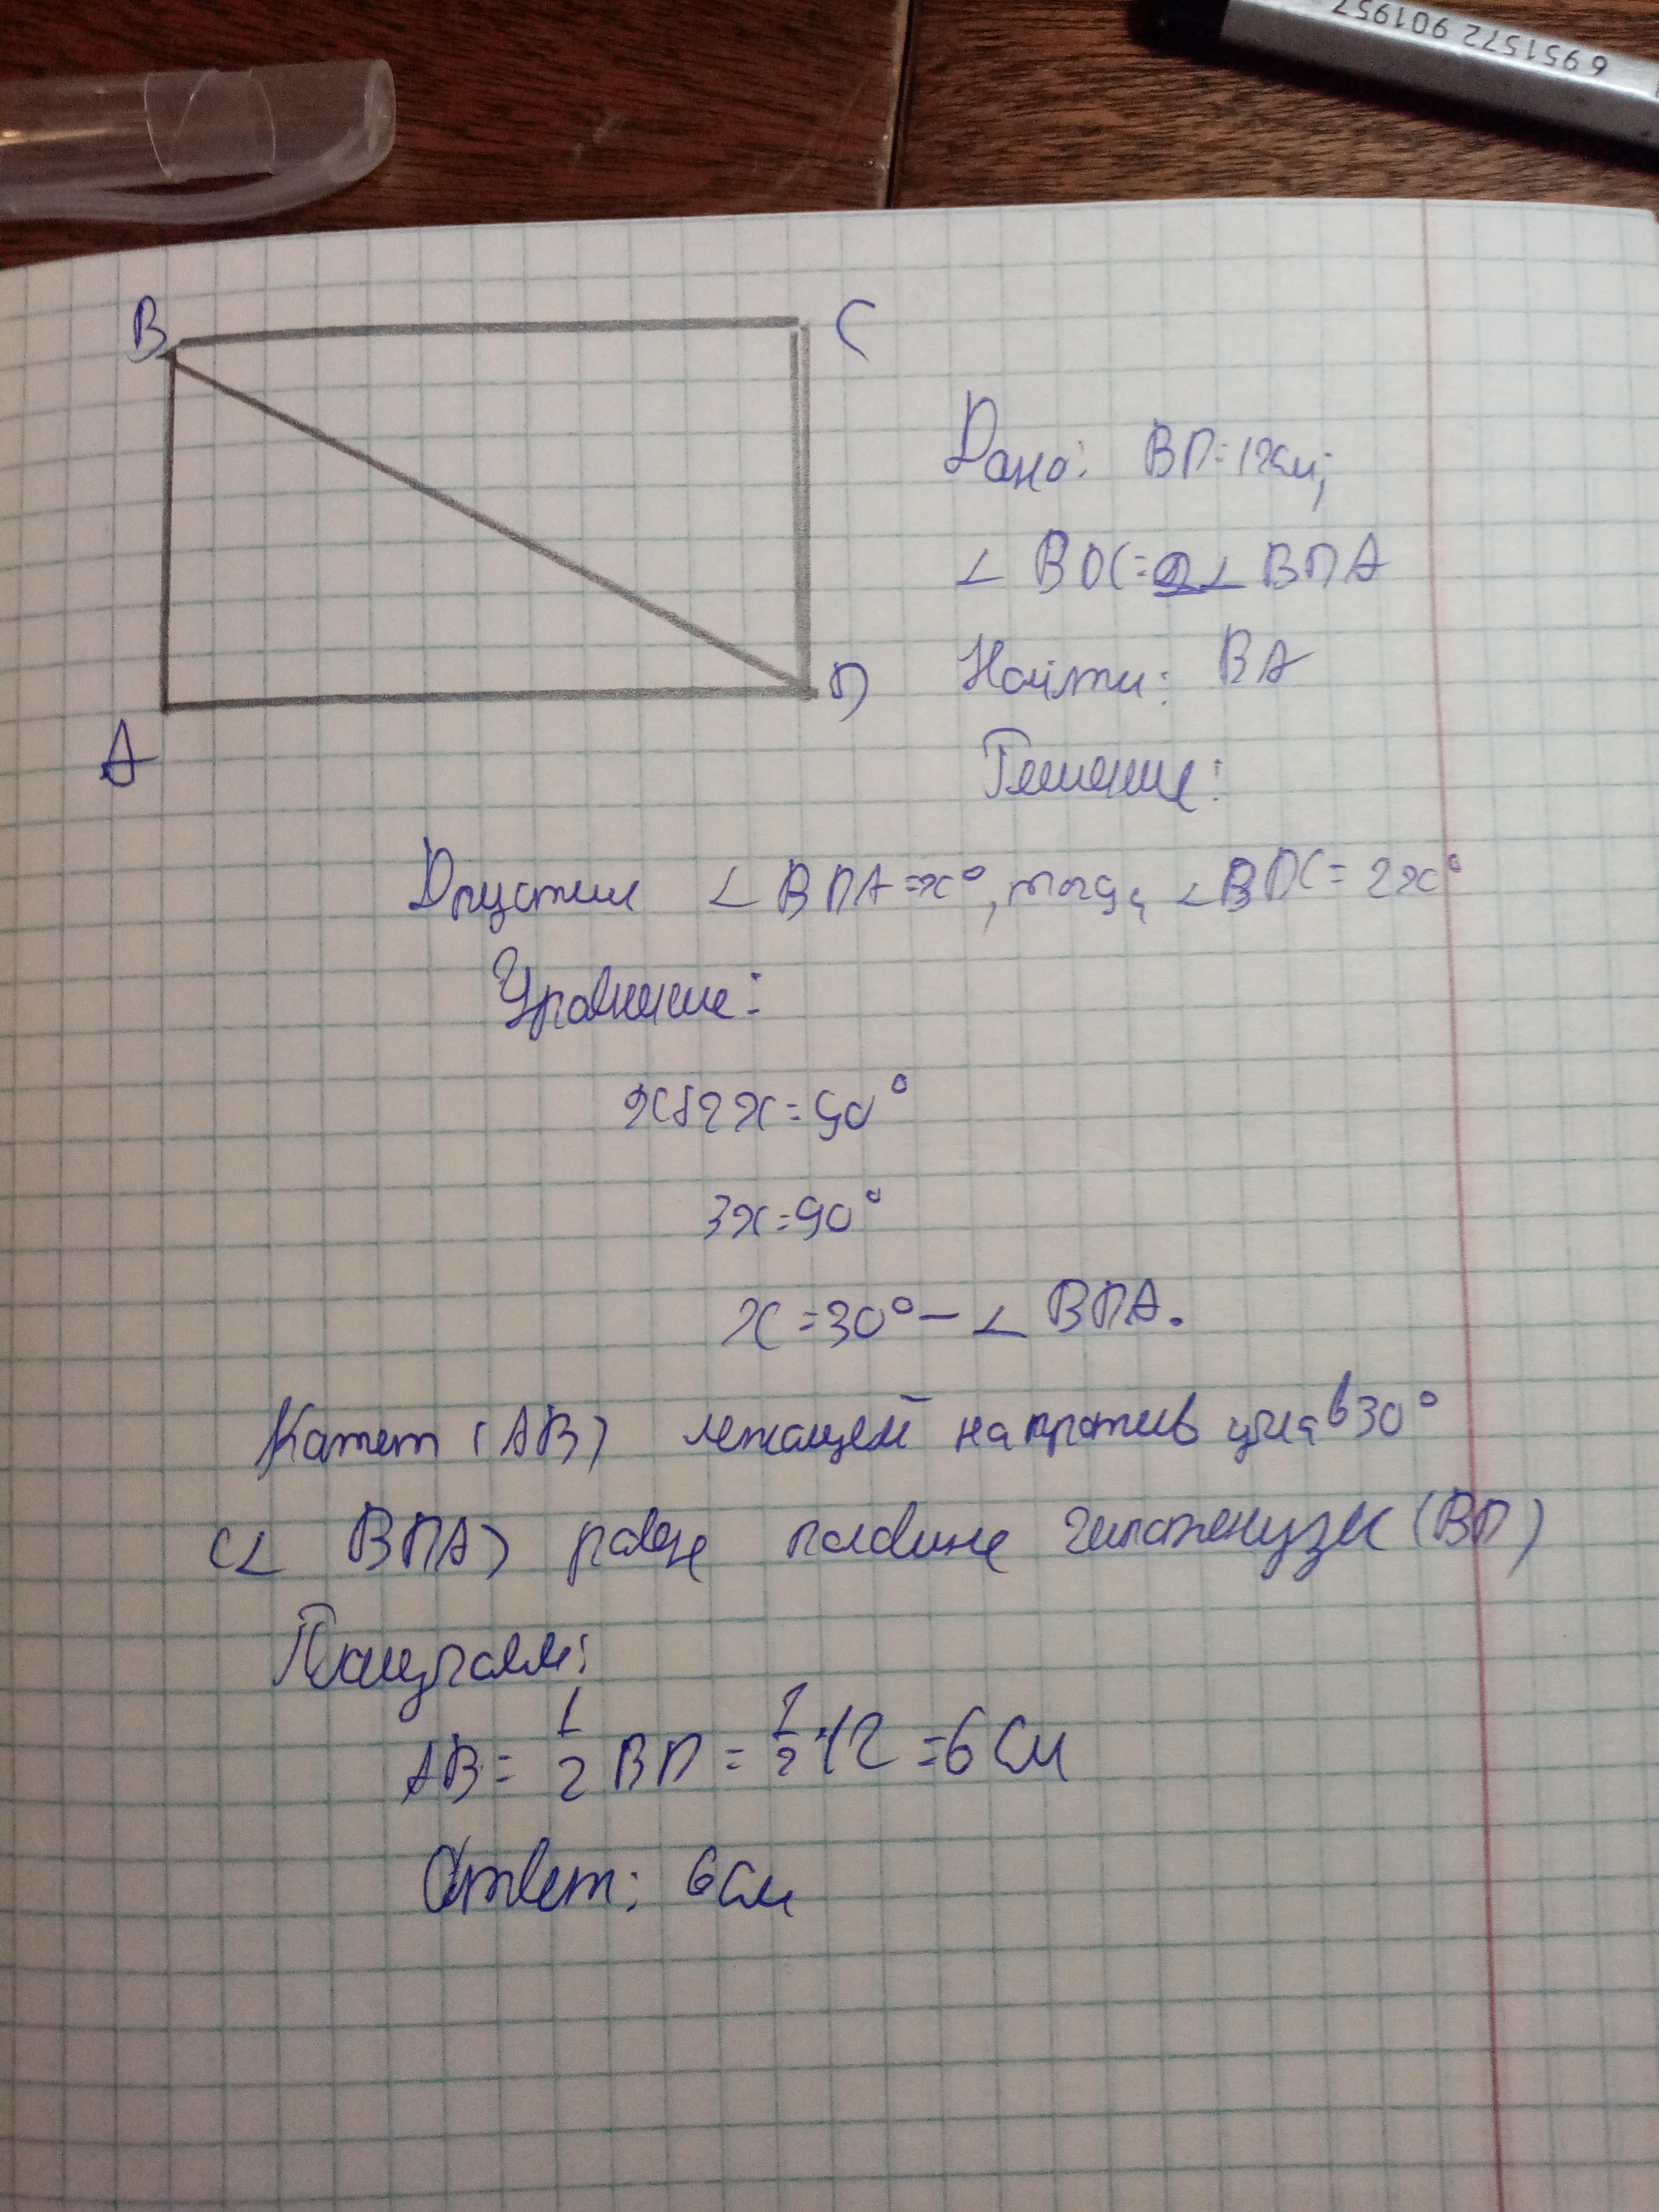 6951572 901957
B
C
Дано: BD=12см;
∠ BDC=2∠ BDA
D
Найти: BA
A
Решение:
Дпустим ∠ BDA=x°, тогда ∠BDC=2x°
Уравнение:
x+2x=90°
3x=90°
x=30°– ∠ BDA.
Катет (AB) лежащей напротив угла в 30°
(∠ BDA) равен половине гипотенузы (BD)
Получаем:
AB= 1/2 BD = 1/2·12 =6см
Ответ: 6см